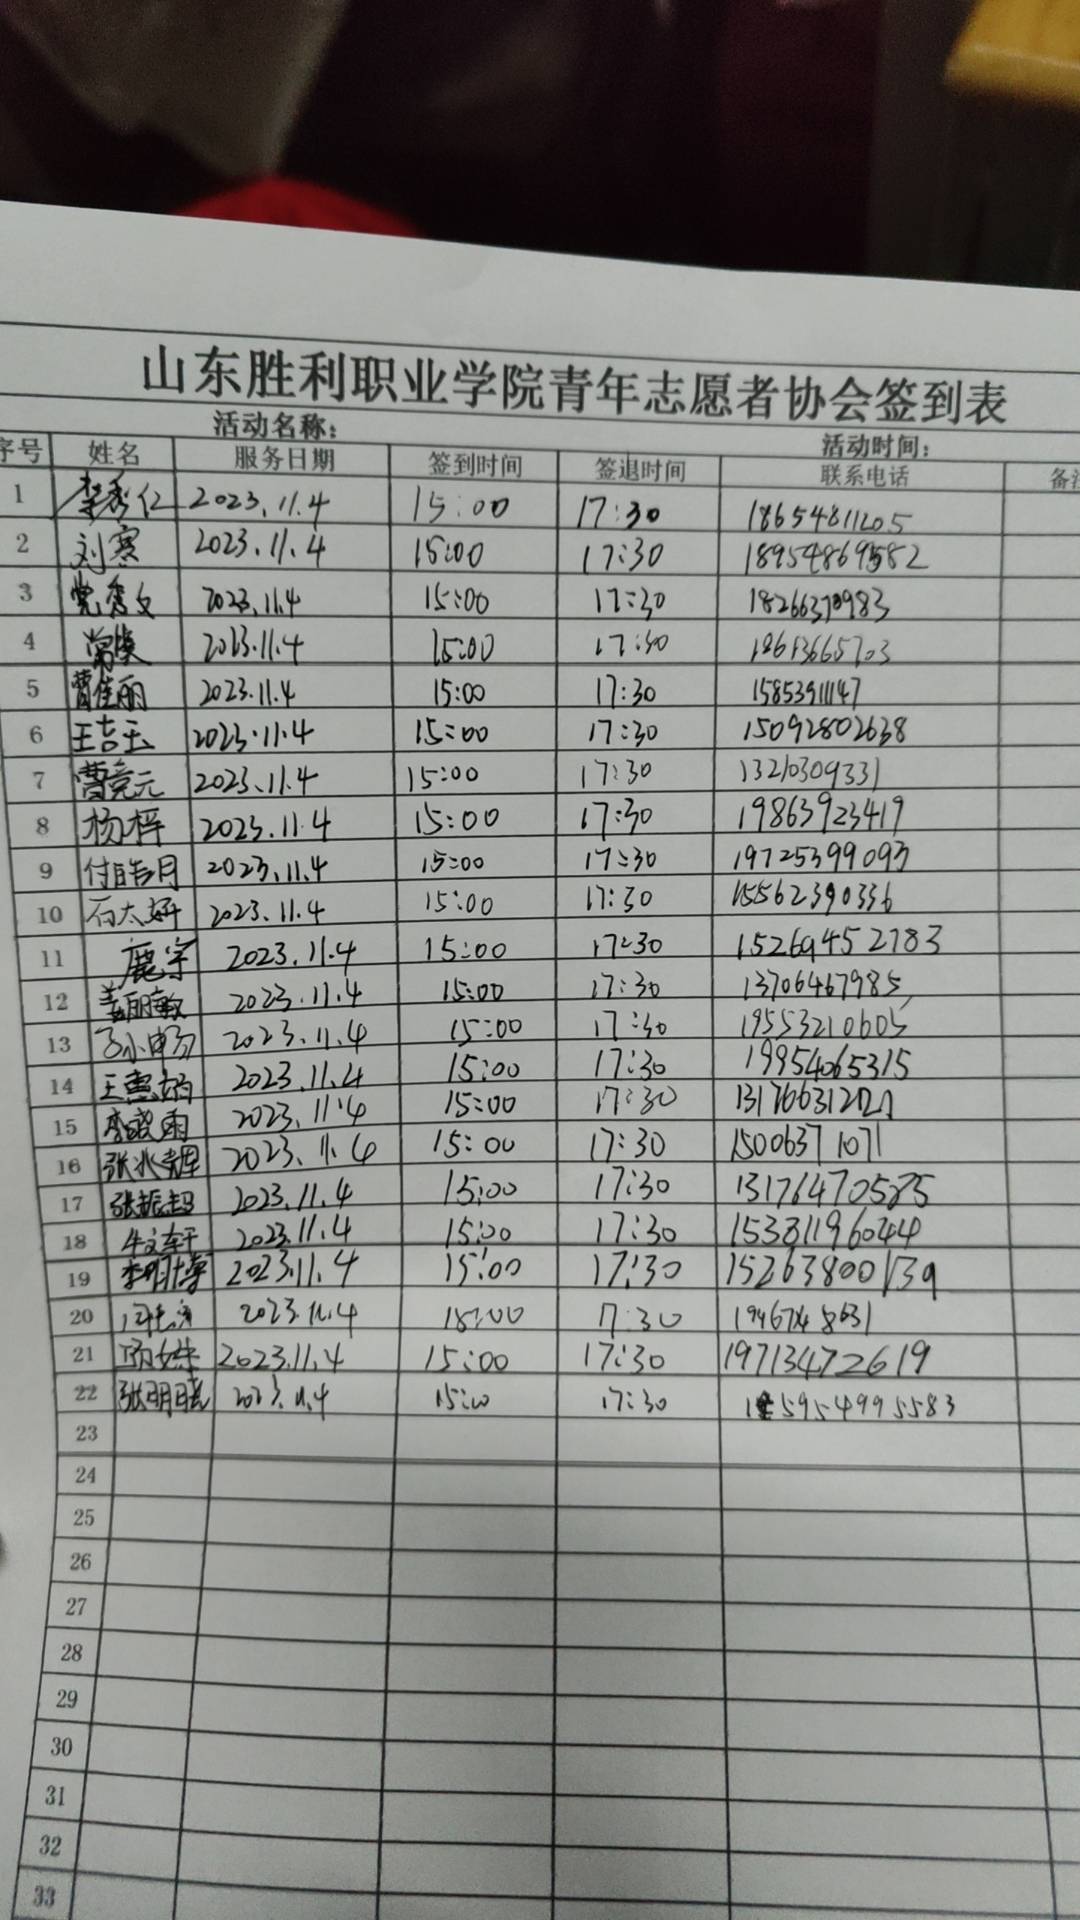 山东胜利职业学院青年志愿者协会签到表
活动名称: 活动时间:
序号 姓名 服务日期 签到时间 签退时间 联系电话 备注
1 李秀仁 2023.11.4 15:00 17:30 18654811205
2 刘赛 2023.11.4 15:00 17:30 18954869582
3 党秀文 2023.11.4 15:00 17:30 18266370983
4 2023.11.4 15:00 17:30
5 曹佳丽 2023.11.4 15:00 17:30 15853911147
6 王吉玉 2023.11.4 15:00 17:30 15092802638
7 曹竞元 2023.11.4 15:00 17:30 13210309331
8 杨梓 2023.11.4 15:00 17:30 19863923419
9 付皓月 2023.11.4 15:00 17:30 19725399093
10 石太妍 2023.11.4 15:00 17:30 15562390336
11 鹿宇 2023.11.4 15:00 17:30 15269452783
12 姜丽敏 2023.11.4 15:00 17:30 13706467985
13 2023.11.4 15:00 17:30 19553210605
14 2023.11.4 15:00 17:30 19954065315
15 2023.11.4 15:00 17:30
16 2023.11.4 15:00 17:30 15006371071
17 张振超 2023.11.4 15:00 17:30 13176470585
18 牛文轩 2023.11.4 15:00 17:30 15381196044
19 李明博 2023.11.4 15:00 17:30 15263800139
20 2023.11.4 15:00 17:30
21 2023.11.4 15:00 17:30 19713472619
22 张明晓 2023.11.4 15:00 17:30 15954995583
23
24
25
26
27
28
29
30
31
32
33